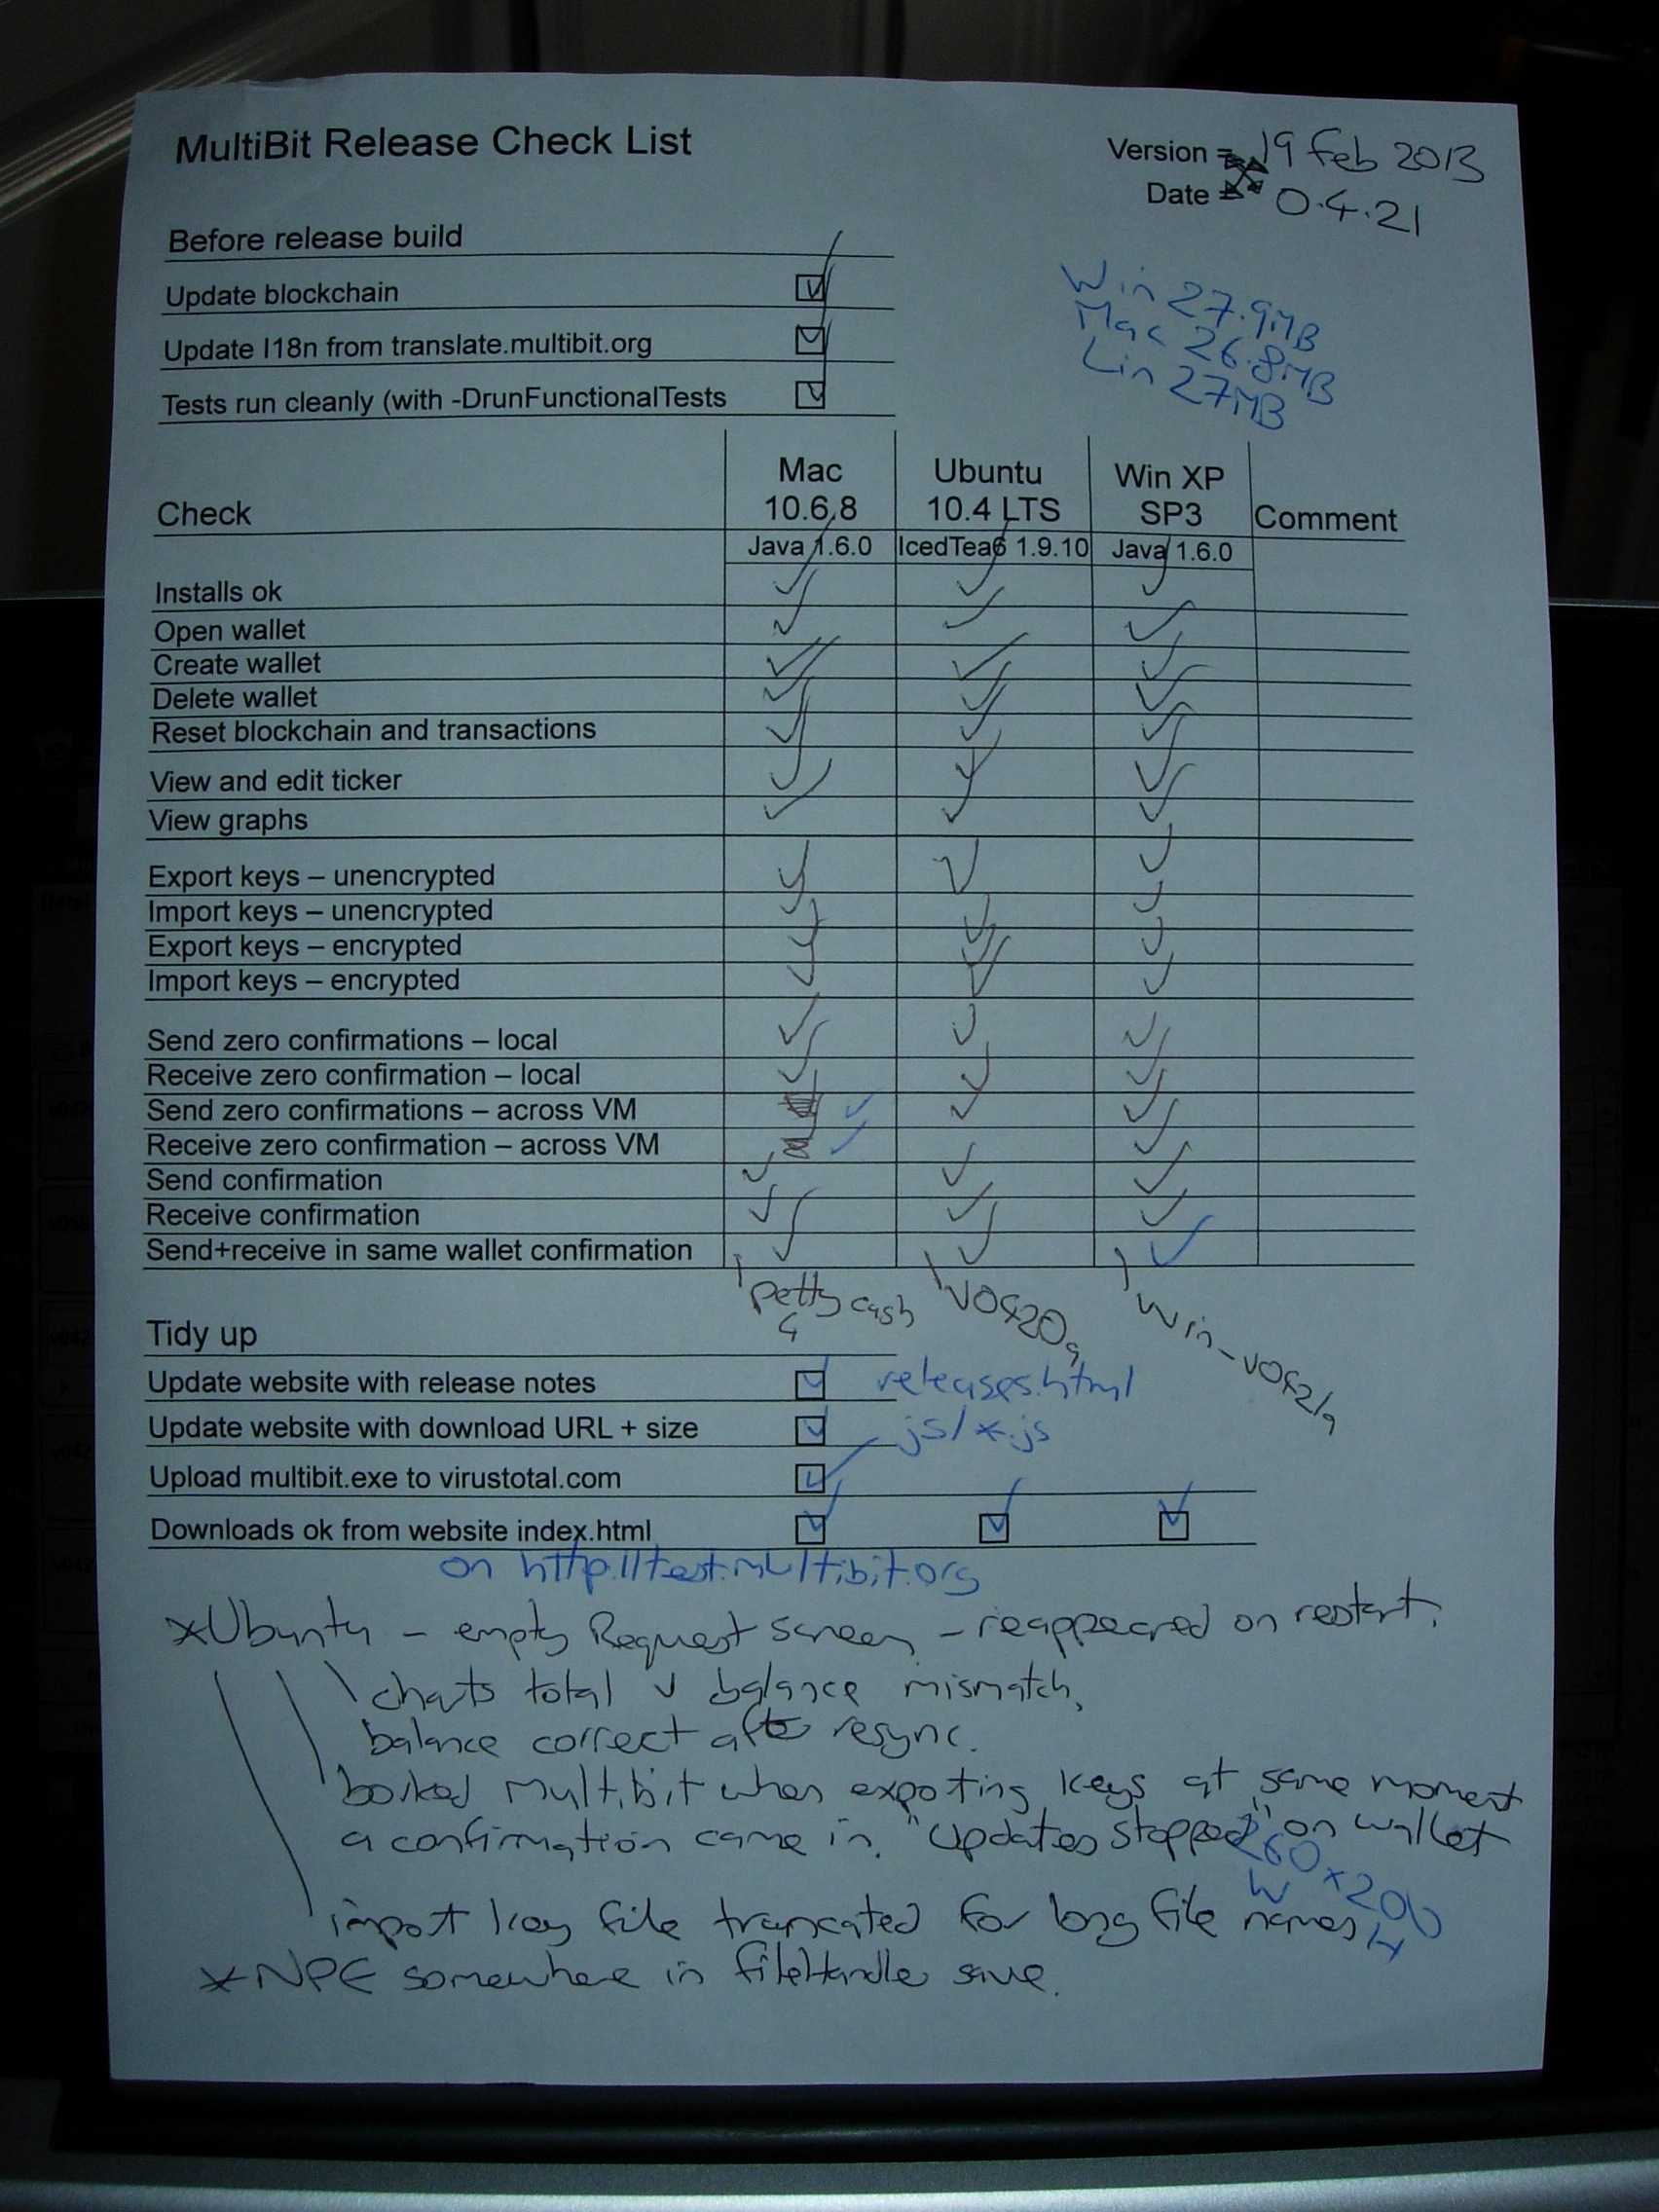 MultiBit Release Check List
Version = 19 Feb 2013
Date = 0.4.21
Before release build
Update blockchain
Update I18n from translate.multibit.org
Tests run cleanly (with -DrunFunctionalTests
Win 27.9MB
Mac 26.8MB
Lin 27MB
Check Mac 10.6.8 Ubuntu 10.4 LTS Win XP SP3 Comment
Java 1.6.0 IcedTea6 1.9.10 Java 1.6.0
Installs ok
Open wallet
Create wallet
Delete wallet
Reset blockchain and transactions
View and edit ticker
View graphs
Export keys – unencrypted
Import keys – unencrypted
Export keys – encrypted
Import keys – encrypted
Send zero confirmations – local
Receive zero confirmation – local
Send zero confirmations – across VM
Receive zero confirmation – across VM
Send confirmation
Receive confirmation
Send+receive in same wallet confirmation
petty cash 4 v0420a Win-v0421a
Tidy up
Update website with release notes releases.html
Update website with download URL + size js/*.js
Upload multibit.exe to virustotal.com
Downloads ok from website index.html
on http://test.multibit.org
*Ubuntu - empty Request screen - reappeared on restart.
charts total v balance mismatch,
balance correct after resync.
borked Multibit when exporting keys at same moment
a confirmation came in. "Updates stopped" on wallet
260 x 200
W H
import key file truncated for long file names
*NPE somewhere in fileHandler save.